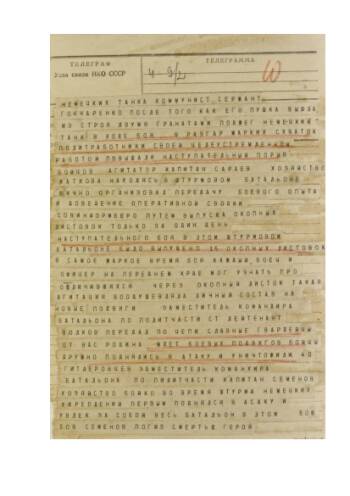 ТЕЛЕГРАФ
Узла связи НКО СССР
ТЕЛЕГРАММА
НЕМЕЦКИХ ТАНКА КОММУНИСТ СЕРЖАНТ
ГОНЧАРЕНКО ПОСЛЕ ТОГО КАК ЕГО ПУШКА ВЫШЛА
ИЗ СТРОЯ ДВУМЯ ГРАНАТАМИ ПОДЖЕГ НЕМЕЦКИЙ
ТАНК В РАЗГАР ЖАРКИХ СХВАТОК
ПОЛИТРАБОТНИКИ СВОЕЙ ЦЕЛЕУСТРЕМЛЕННОЙ
РАБОТОЙ ПОВЫШАЛИ НАСТУПАТЕЛЬНЫЙ ПОРЫВ
БОЙЦОВ АГИТАТОР КАПИТАН САРАЕВ ХОЗЯЙСТВО
НАХОДЯСЬ В ШТУРМОВОМ БАТАЛЬОНЕ
ОРГАНИЗОВАЛ ПЕРЕДАЧУ БОЕВОГО ОПЫТА
И ДОВЕДЕНИЕ ОПЕРАТИВНОЙ СВОДКИ
СОВИНФОРМБЮРО ПУТЕМ ВЫПУСКА ОКОПНЫХ
ЛИСТОВОК ТОЛЬКО ЗА ОДИН ДЕНЬ
НАСТУПАТЕЛЬНОГО БОЯ В ЭТОМ ШТУРМОВОМ
БАТАЛЬОНЕ БЫЛО ВЫПУЩЕНО ОКОПНЫХ ЛИСТОВОК
В САМОЕ ЖАРКОЕ ВРЕМЯ БОЯ КАЖДЫЙ БОЕЦ И
ОФИЦЕР НА ПЕРЕДНЕМ КРАЕ МОГ УЗНАТЬ ПРО
ОТЛИЧИВШИХСЯ ЧЕРЕЗ ОКОПНЫЙ ЛИСТОК ТАКАЯ
АГИТАЦИЯ ВООДУШЕВЛЯЛА ЛИЧНЫЙ СОСТАВ НА
НОВЫЕ ПОДВИГИ ЗАМЕСТИТЕЛЬ КОМАНДИРА
БАТАЛЬОНА ПО ПОЛИТЧАСТИ СТ ЛЕЙТЕНАНТ
ВОЛКОВ ПЕРЕДАЛ ПО ЦЕПИ СЛАВНЫЕ ГВАРДЕЙЦЫ
ОТ ВАС РОДИНА ЖДЕТ БОЕВЫХ ПОДВИГОВ БОЙЦЫ
ДРУЖНО ПОДНЯЛИСЬ В АТАКУ И УНИЧТОЖИЛИ 40
ГИТЛЕРОВЦЕВ ЗАМЕСТИТЕЛЬ КОМАНДИРА
БАТАЛЬОНА ПО ПОЛИТЧАСТИ КАПИТАН СЕМЕНОВ
ХОЗЯЙСТВО БОЙКО ВО ВРЕМЯ ШТУРМА НЕМЕЦКИХ
УКРЕПЛЕНИЙ ПЕРВЫМ ПОДНЯЛСЯ В АТАКУ И
УВЛЕК ЗА СОБОЙ ВЕСЬ БАТАЛЬОН В ЭТОМ БОЮ
СЕМЕНОВ ПОГИБ СМЕРТЬЮ ГЕРОЯ